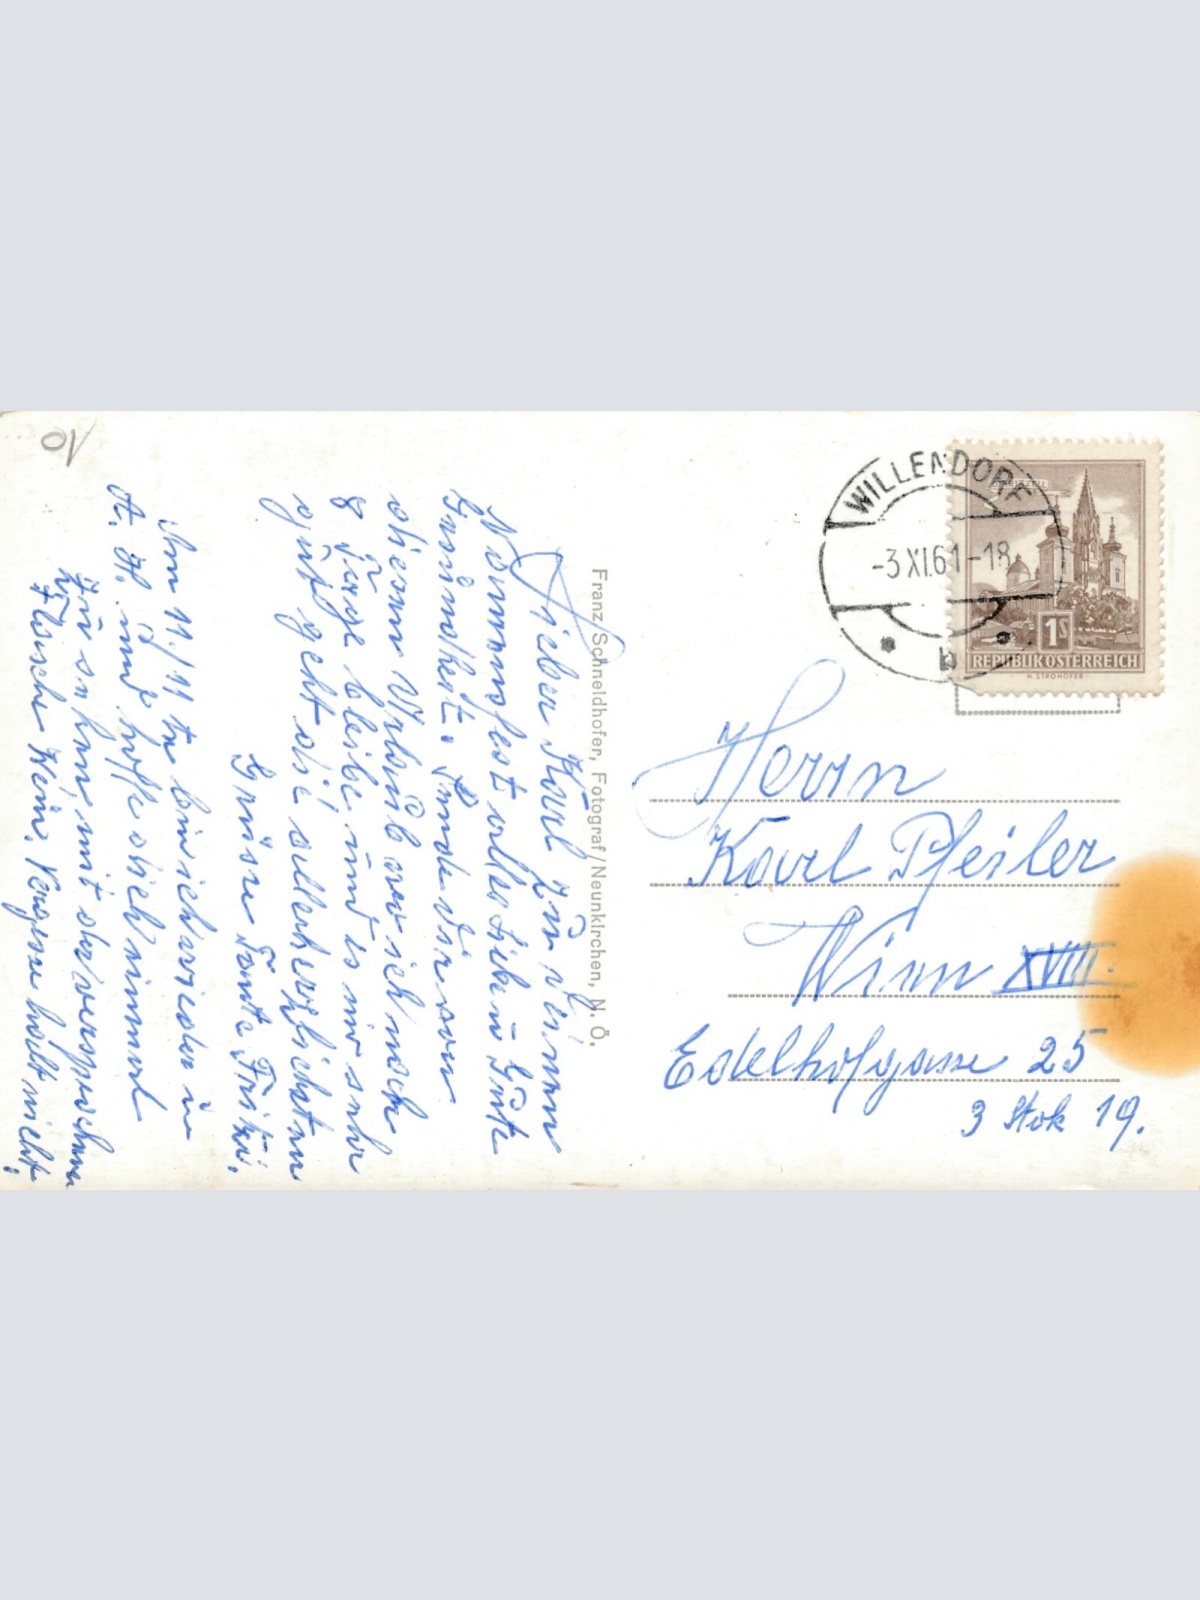 10
Lieber Karl zu deinem
Namensfest alles Liebe u. Gute
Gesundheit. Sende dir von
diesem Urlaub wo ich noch
8 Tage bleibe und es mir sehr
gut geht die allerherzlichsten
Grüsse Tante Fritzi.
Am 11./11 te bin ich wieder in
A. H. und hoffe dich einmal
zu sehen mit der versprochenen
Flasche Wein. Vergesse halt nicht.
Franz Schneidhofer, Fotograf/Neunkirchen, N. Ö.
WILLENDORF
-3 XI.61-18
b
MARIAZELL
1S
REPUBLIK ÖSTERREICH
H. STROHOFER
Herrn
Karl Pfeiler
Wien XVIII.
Edelhofgasse 25
3 Stok 19.